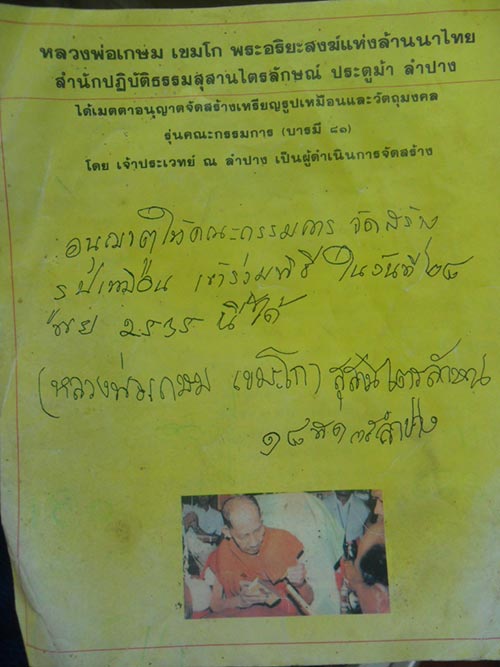 หลวงพ่อเกษม เขมโก พระอริยะสงฆ์แห่งล้านนาไทย
สำนักปฏิบัติธรรมสุสานไตรลักษณ์ ประตูม้า ลำปาง
ได้เมตตาอนุญาตจัดสร้างเหรียญรูปเหมือนและวัตถุมงคล
รุ่นคณะกรรมการ (บารมี ๘๑)
โดย เจ้าประเวทย์ ณ ลำปาง เป็นผู้ดำเนินการจัดสร้าง
อนุญาตให้คณะกรรมการ จัดสร้าง
รูปเหมือน เข้าร่วมพิธี ในวันที่ ๒๘
พย ๒๕๓๕ นี้ได้
(หลวงพ่อเกษม เขมโก) สุสานไตรลักษณ์
ลำปาง